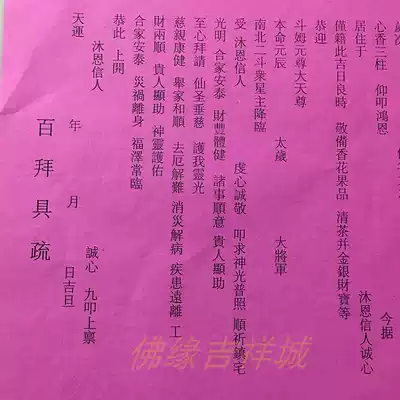 歲次
心香三柱 仰叩鴻恩 今据
居住于
僅籍此吉日良時 敬備香花果品 清茶并金銀財寶等 沐恩信人诚心
恭迎
斗姆元尊大天尊
本命元辰 太歲 太將軍
南北二斗衆星主降臨
受 沐恩信人 虔心誠敬 叩求神光普照 順祈鎮宅
光明 合家安泰 財豐體健 諸事順意 貴人顯助
至心拜請 仙圣垂慈 護我靈光
慈親康健 舉家和順 去厄解難 消災解病 疾患遠離 工
財兩順 貴人顯助 神靈護佑
合家安泰 災禍離身 福澤常臨
恭此 上開
沐恩信人 誠心 九叩上禀
天運 年 月 日吉旦
百拜具疏
佛缘吉祥城